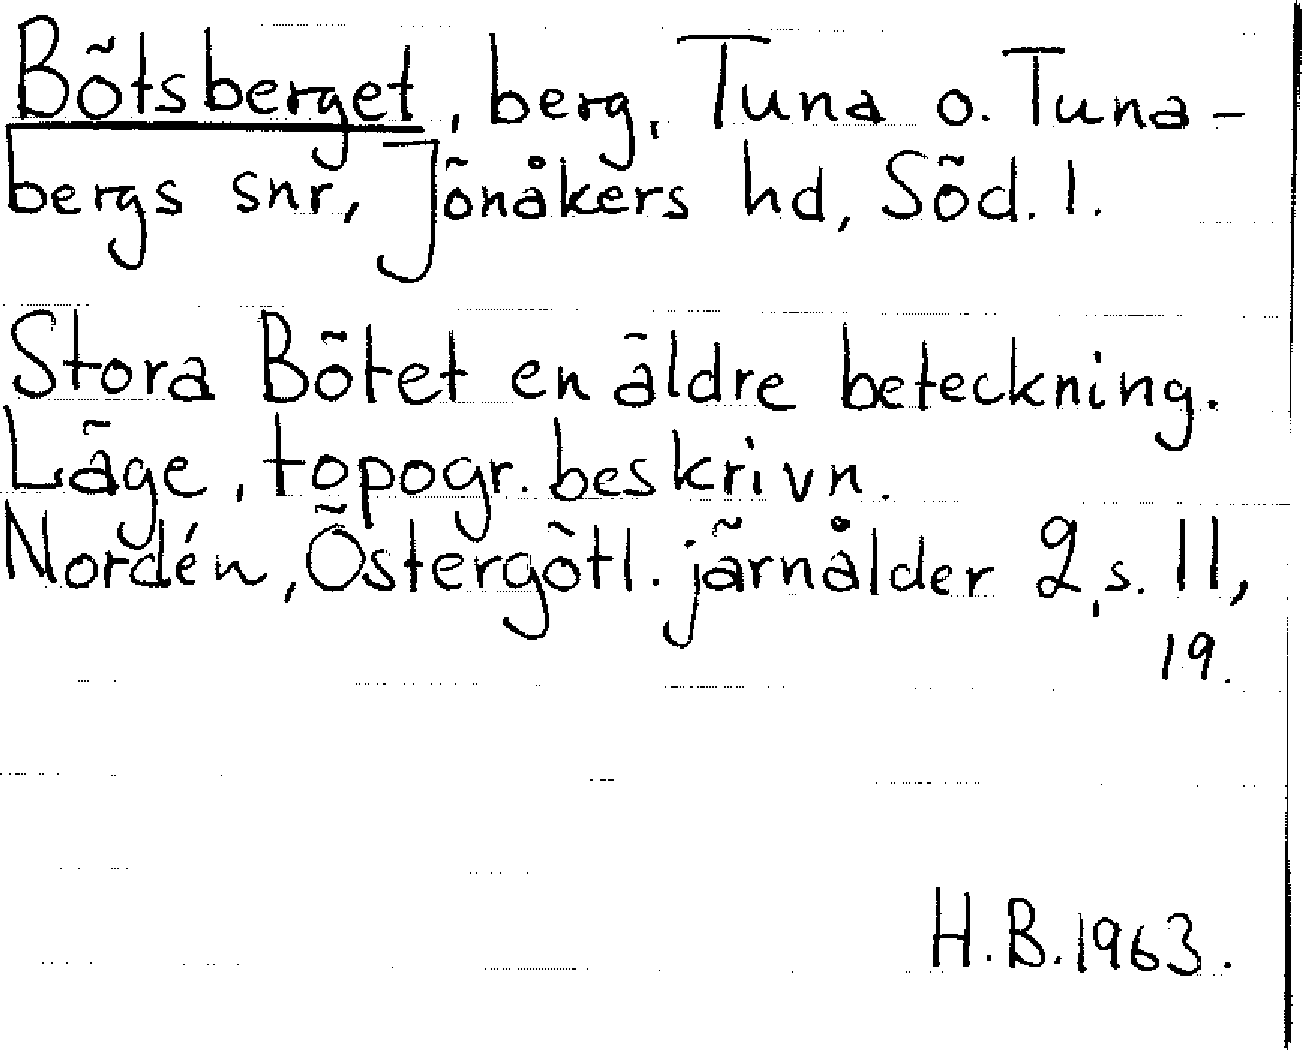 Bötsberget, berg, Tuna o. Tuna-
bergs snr, Jönåkers hd, Söd. l.
Stora Bötet en äldre beteckning.
Läge, topogr. beskrivn.
Nordén, Östergötl. järnålder 2, s. 11,
19.
H.B. 1963.